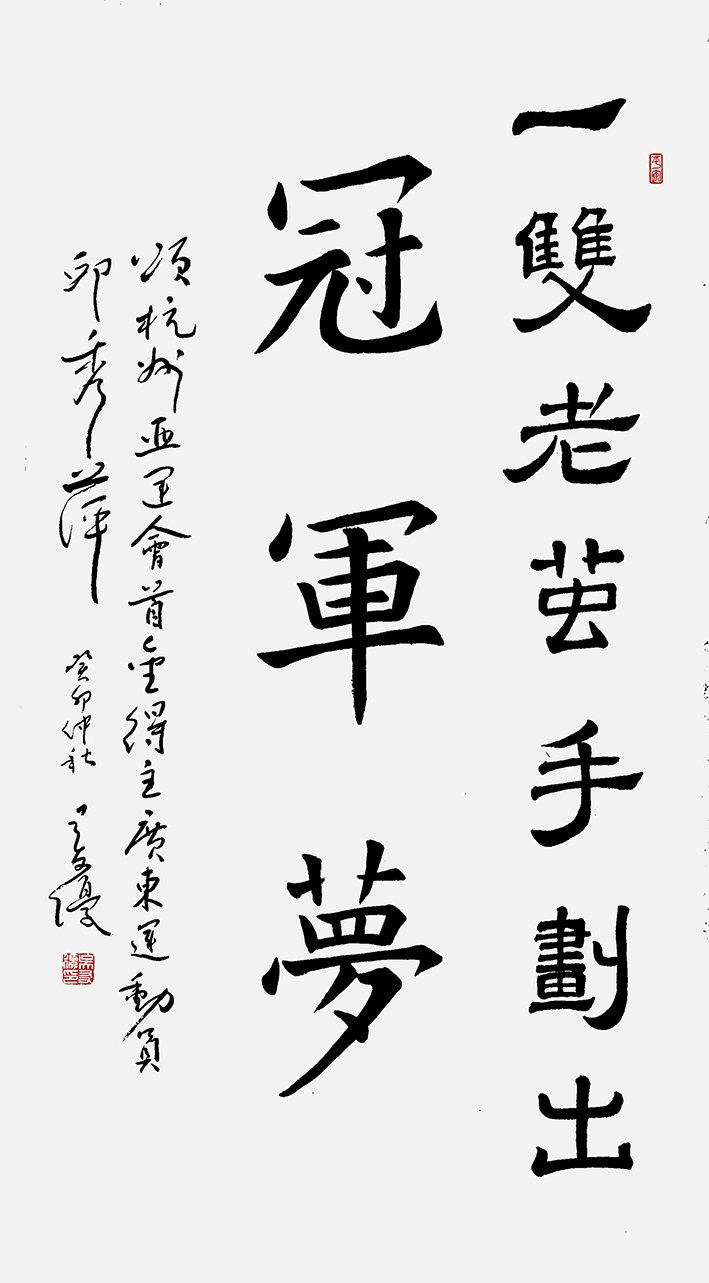 一雙老茧手劃出
冠軍夢
頌杭州亚運會首金得主廣東運動員
邱秀萍 癸卯仲秋